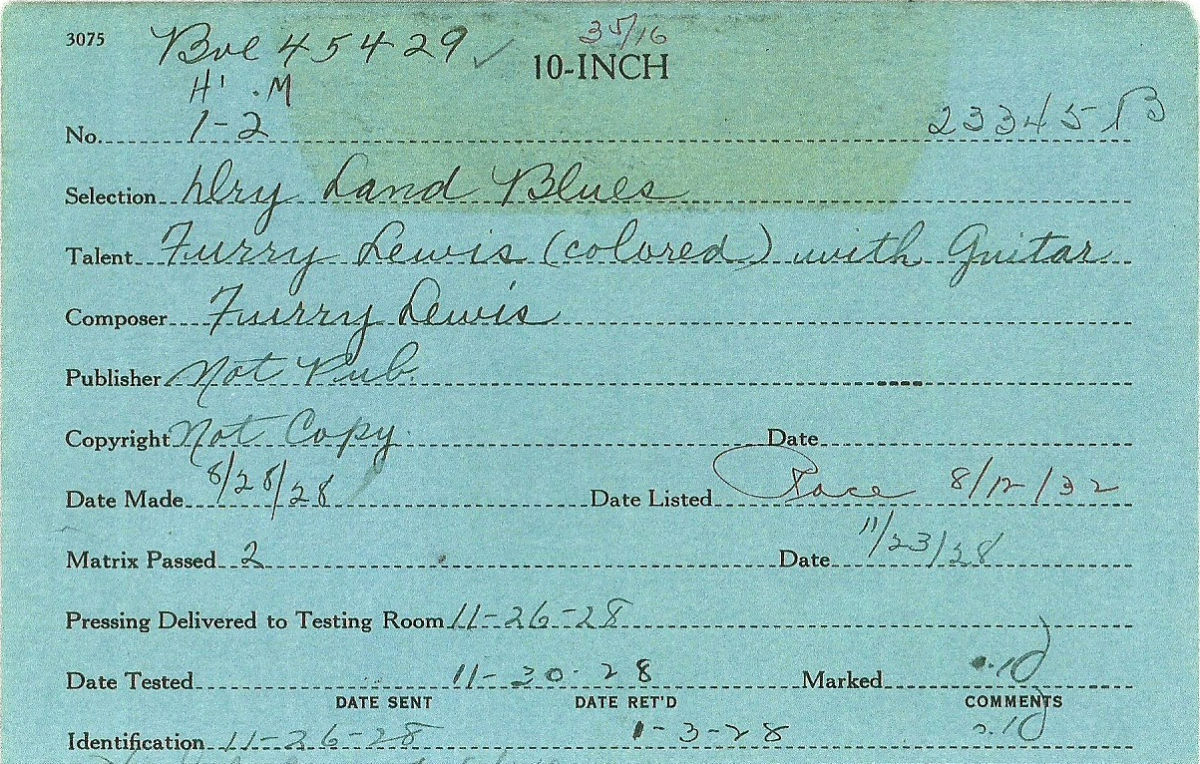 3075 Bve 45429 ✓ 35/16
10-INCH
H' . M
No. 1-2 23345-B
Selection Dry Land Blues
Talent Furry Lewis (colored) with Guitar
Composer Furry Lewis
Publisher Not Pub.
Copyright Not Copy. Date
Date Made 8/28/28 Date Listed Race 8/12/32
Matrix Passed 2 Date 11/23/28
Pressing Delivered to Testing Room 11-26-28
Date Tested 11-30-28 Marked
DATE SENT DATE RET'D COMMENTS
Identification 11-26-28 1-3-28